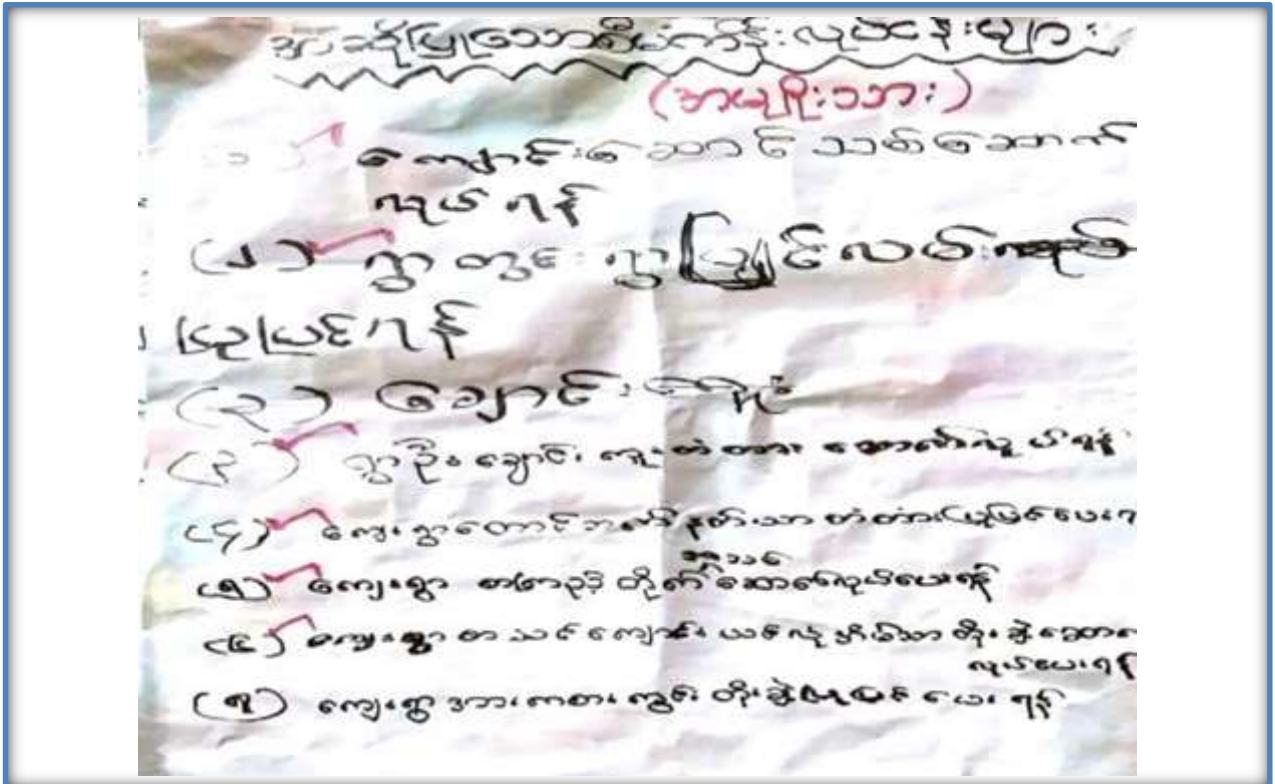 အဆိုပြုသောစီမံကိန်းလုပ်ငန်းများ
(အမျိုးသား)
ကျောင်းဆောင်သစ်ဆောက်
လုပ်ရန်
(၂) ရွာတွင်းရွာပြင်လမ်း
ပြုပြင်ရန်
(၃) ချောင်း
(၃) ရွာဦးချောင်းကူးတံတား ဆောက်လုပ်ရန်
(၄) ကျေးရွာတောင်ဘက် နတ်သာ တံတားပြုပြင်ပေးရ
အသစ်
(၅) ကျေးရွာ စာကြည့်တိုက် ဆောက်လုပ်ပေးရန်
(၆) ကျေးရွာ စာသင်ကျောင်း ယင်လုံအိမ်သာ တိုးချဲ့ဆောက်
လုပ်ပေးရန်
(၇) ကျေးရွာအားကစားကွင်း တိုးချဲ့ ပေးရန်